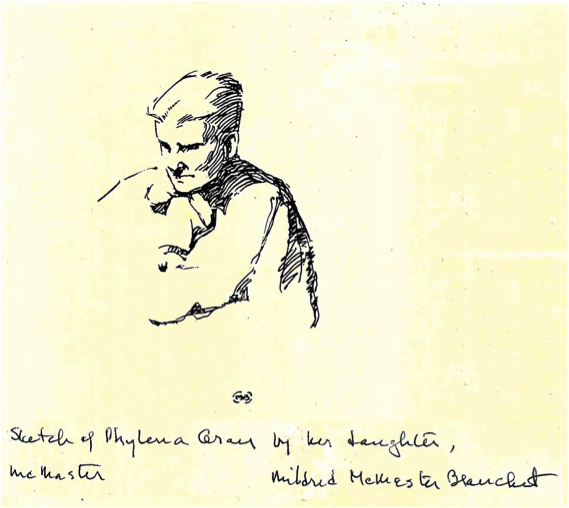 Sketch of Phylena by her daughter,
McMaster Mildred McMaster Blanchet